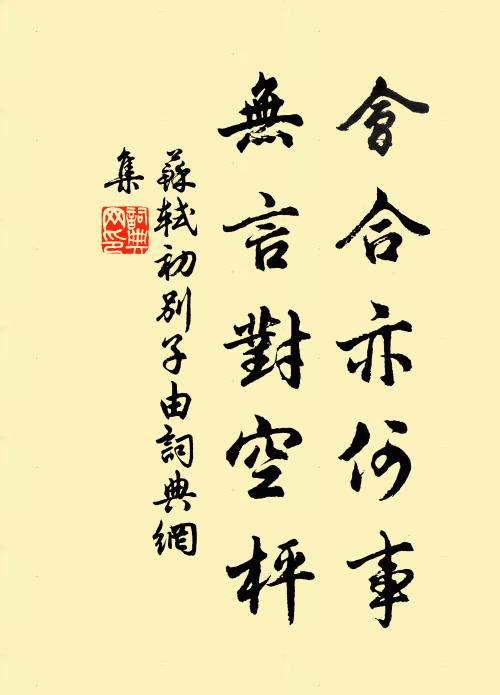 會合亦何事
無言對空枰
蘇軾初別子由詞典網
集
詞典
網印